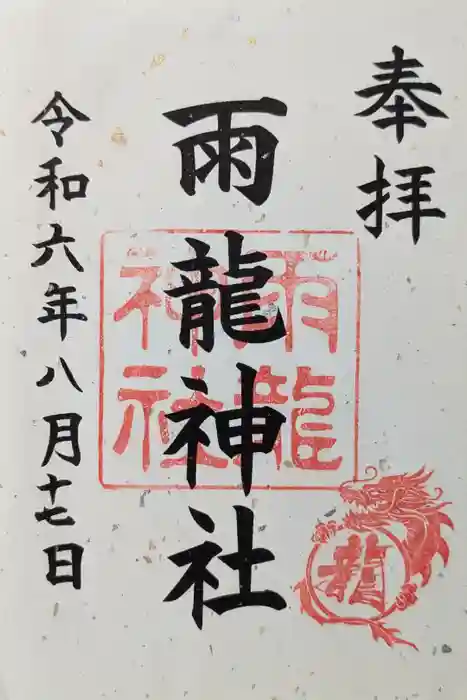 奉拝
雨龍神社
雨龍
神社
龍
令和六年八月十七日